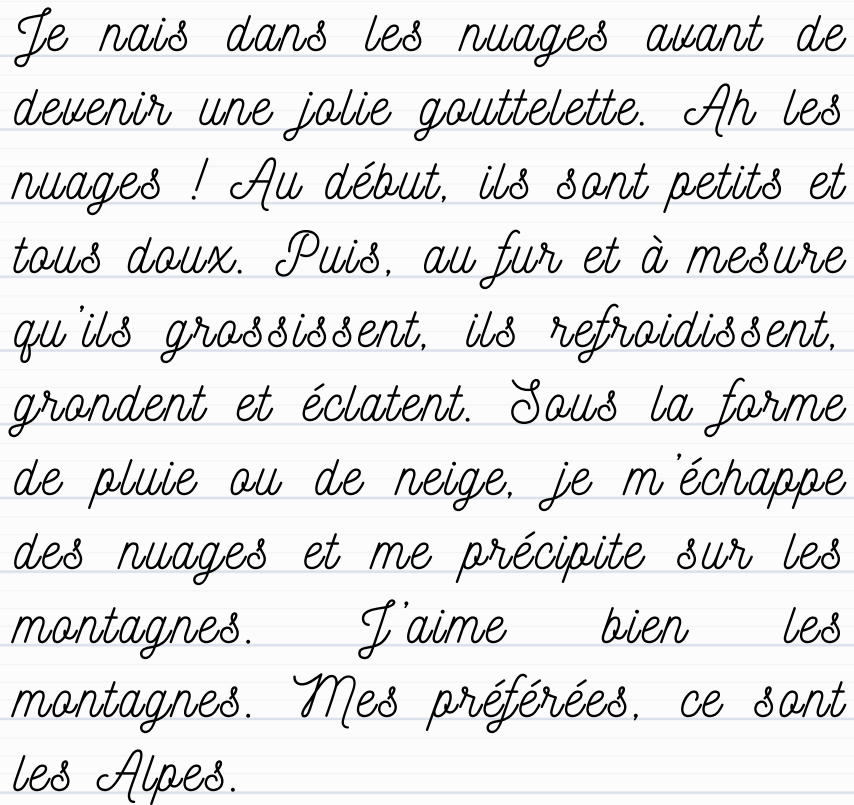 Je nais dans les nuages avant de
devenir une jolie gouttelette. Ah les
nuages ! Au début, ils sont petits et
tous doux. Puis, au fur et à mesure
qu'ils grossissent, ils refroidissent,
grondent et éclatent. Sous la forme
de pluie ou de neige, je m'échappe
des nuages et me précipite sur les
montagnes. J'aime bien les
montagnes. Mes préférées, ce sont
les Alpes.